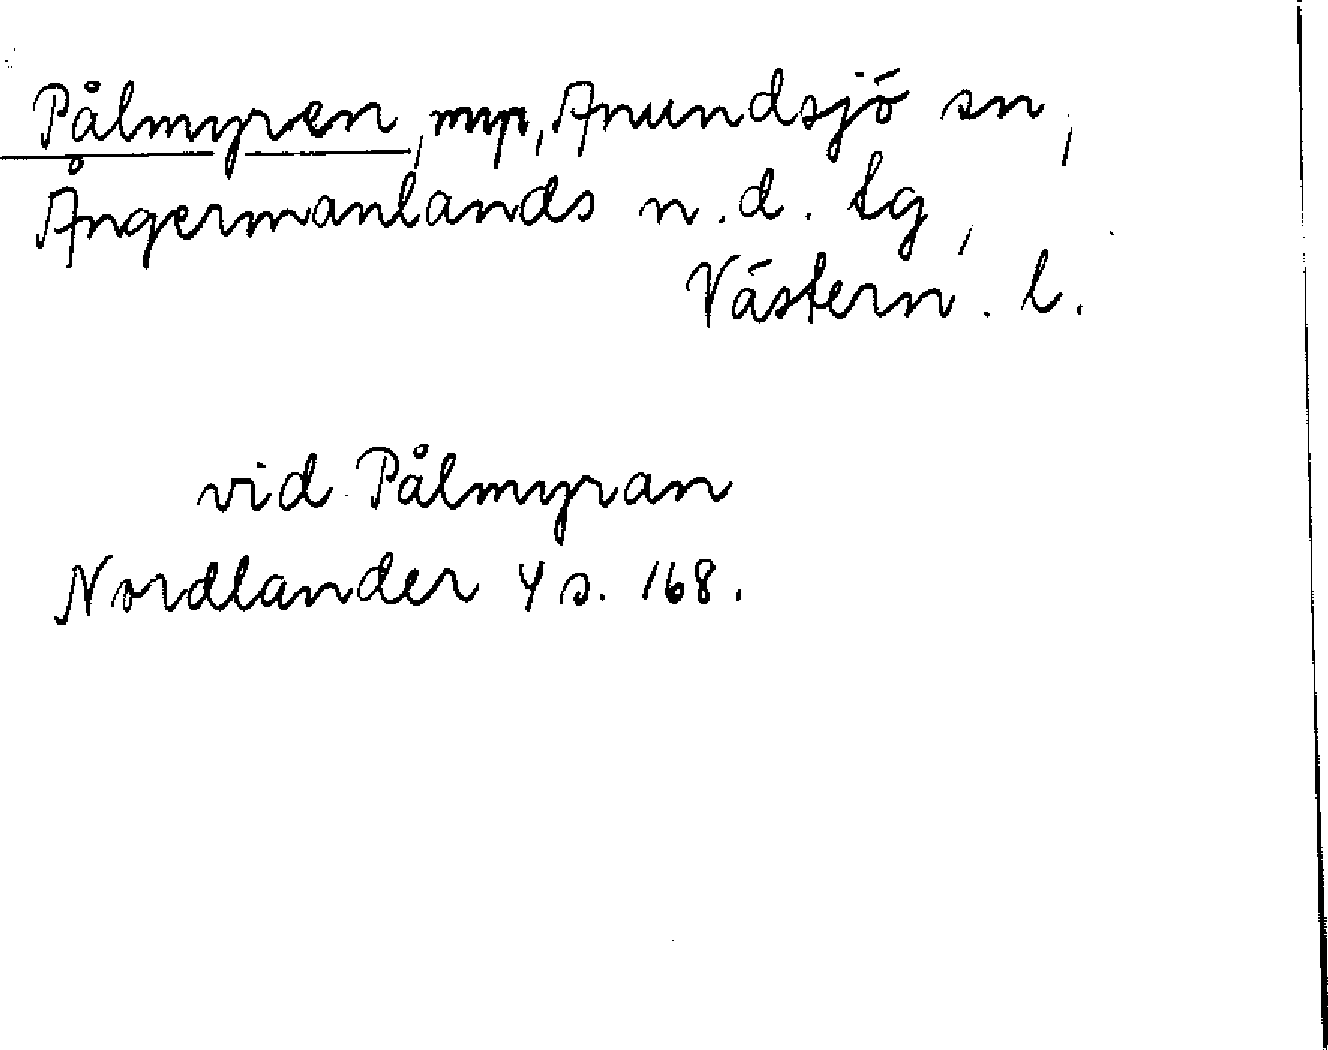 Pålmyren, myr, Anundsjö sn,
Ångermanlands n. d. lg,
Västern. l.
vid Pålmyran
Nordlander 4 s. 168.